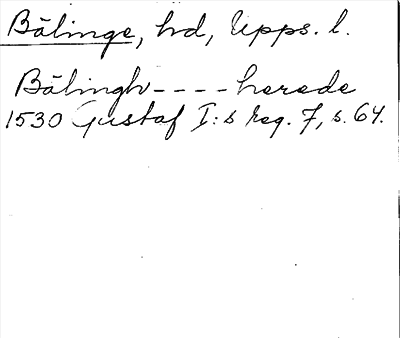 Bälinge, hd, Upps. l.
Bälingh---- herede
1530 Gustaf I:s reg. 7, s. 64.